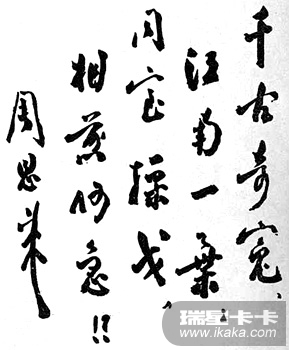 千古奇冤、
江南一葉；
同室操戈、
相煎何急!!
周恩来
瑞星卡卡
www.ikaka.com